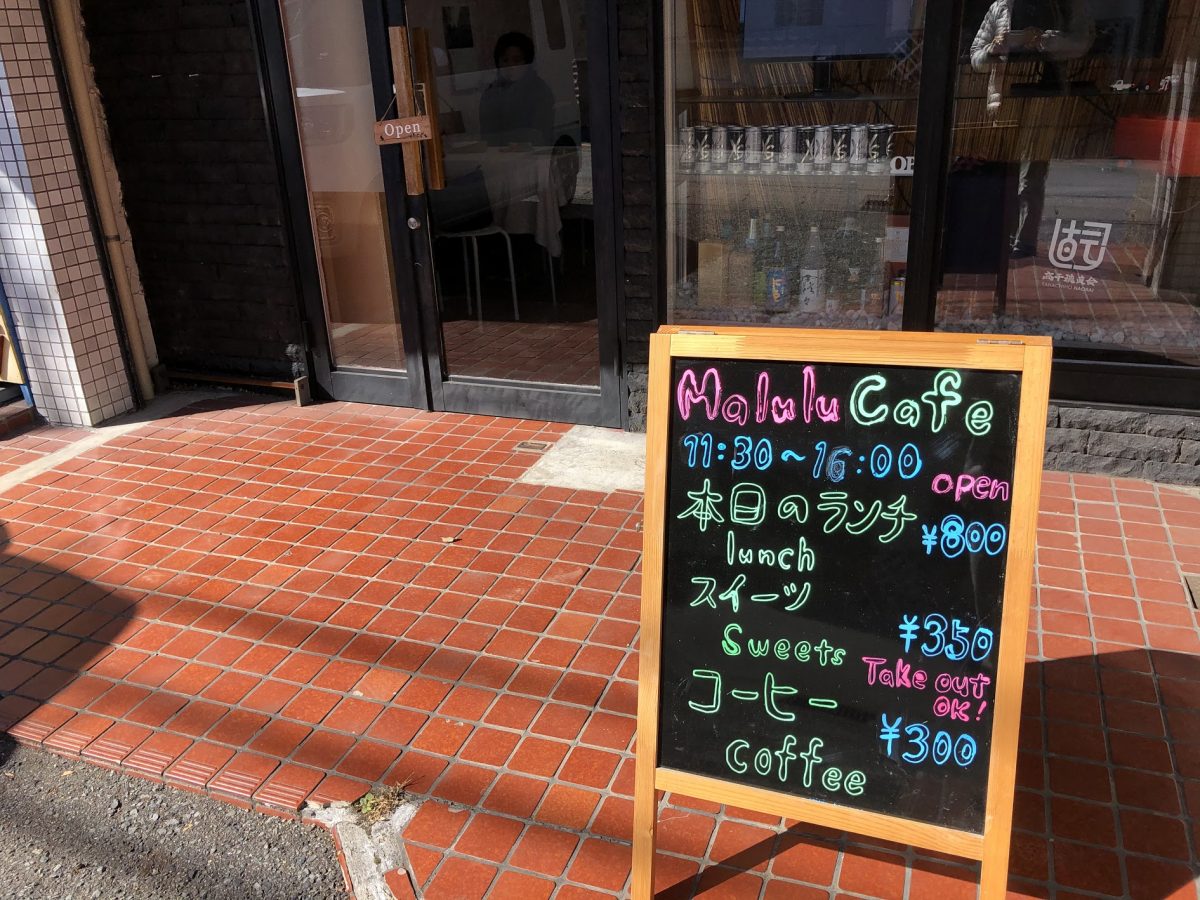 Open
OP
高千穂直会
TAKACHIHO NAORAI
Malulu Cafe
11:30~16:00
open
本日のランチ
¥800
lunch
スイーツ
¥350
Sweets
Take out
OK!
コーヒー
¥300
Coffee